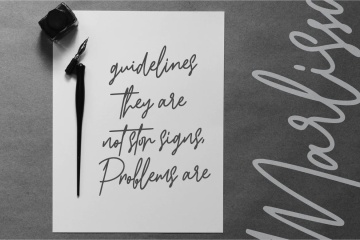 guidelines
they are
not stop signs.
Problems are
Marlissa